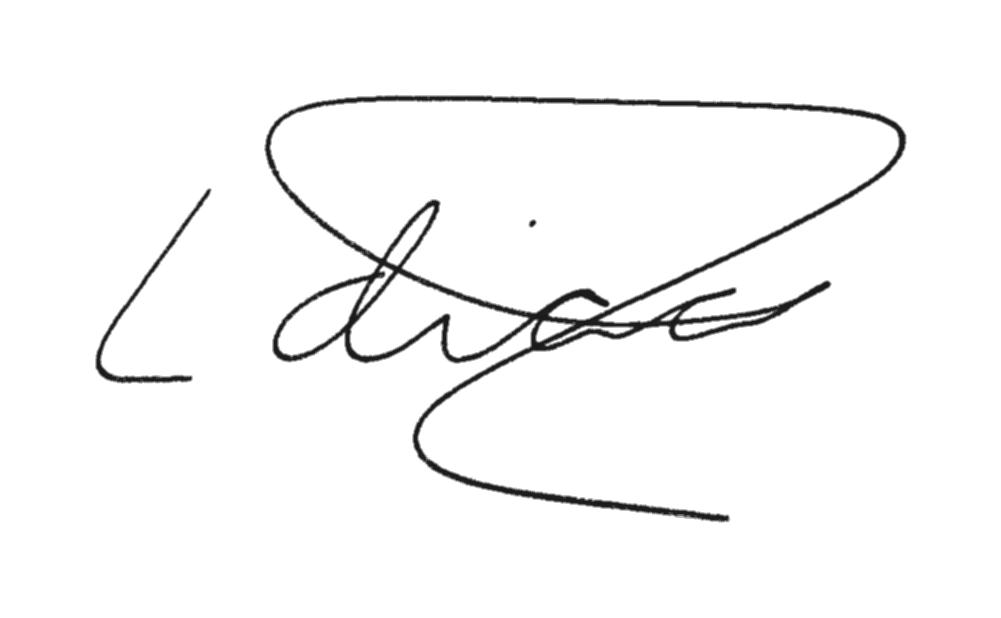 L diaz